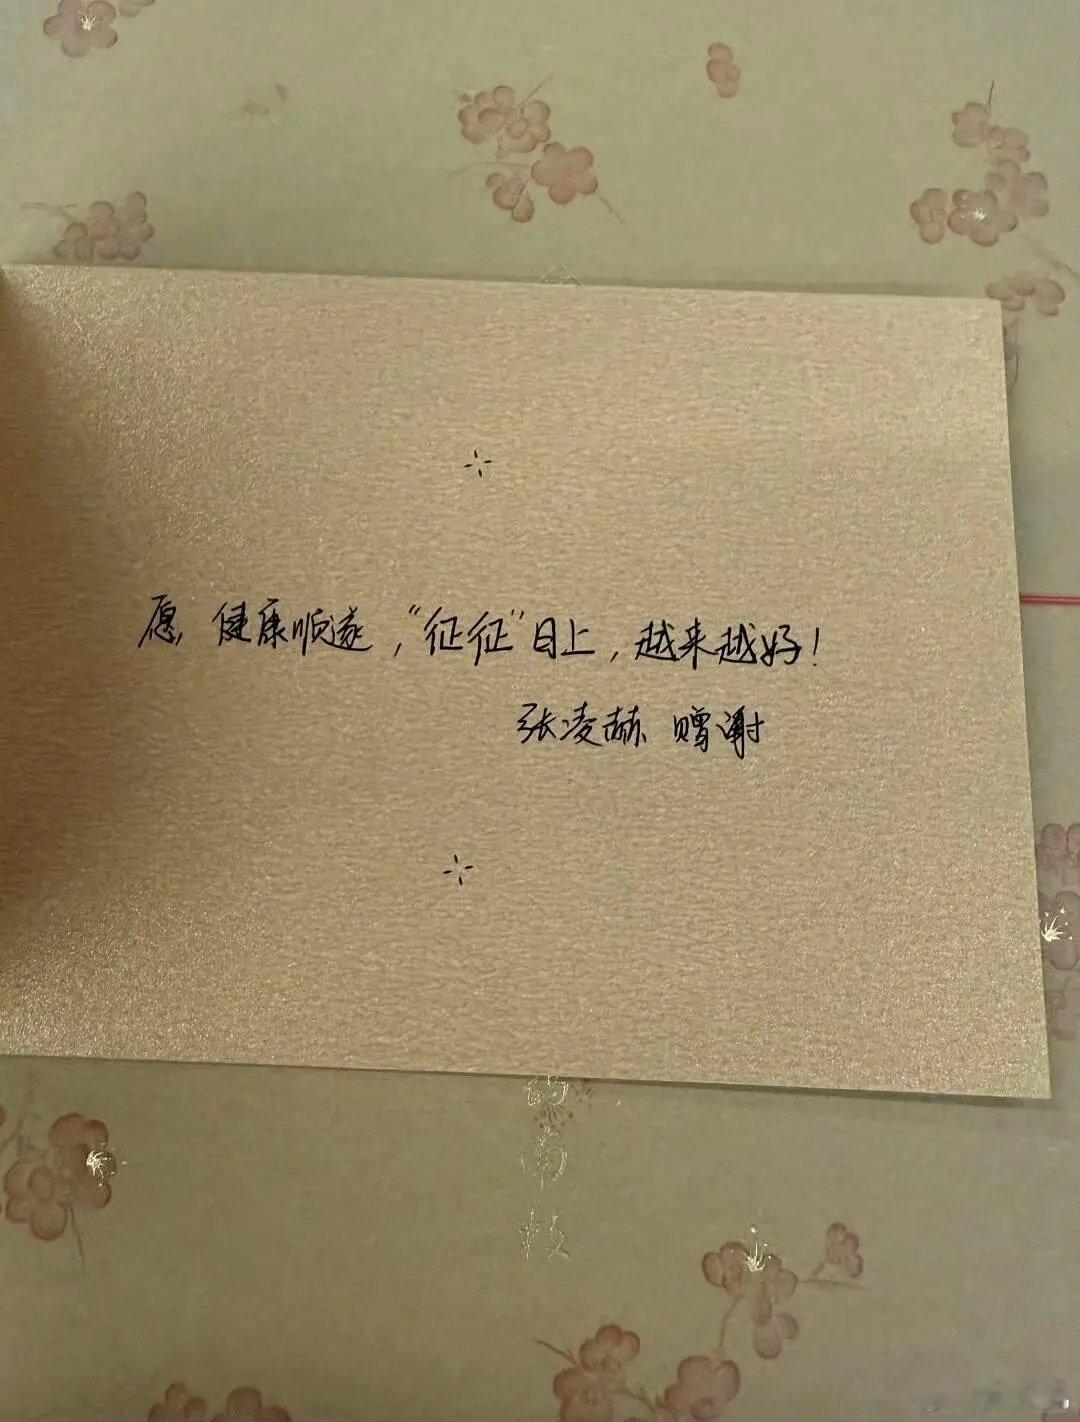 愿,健康顺遂,“征征”日上,越来越好!
张凌赫 赠谢
南枝